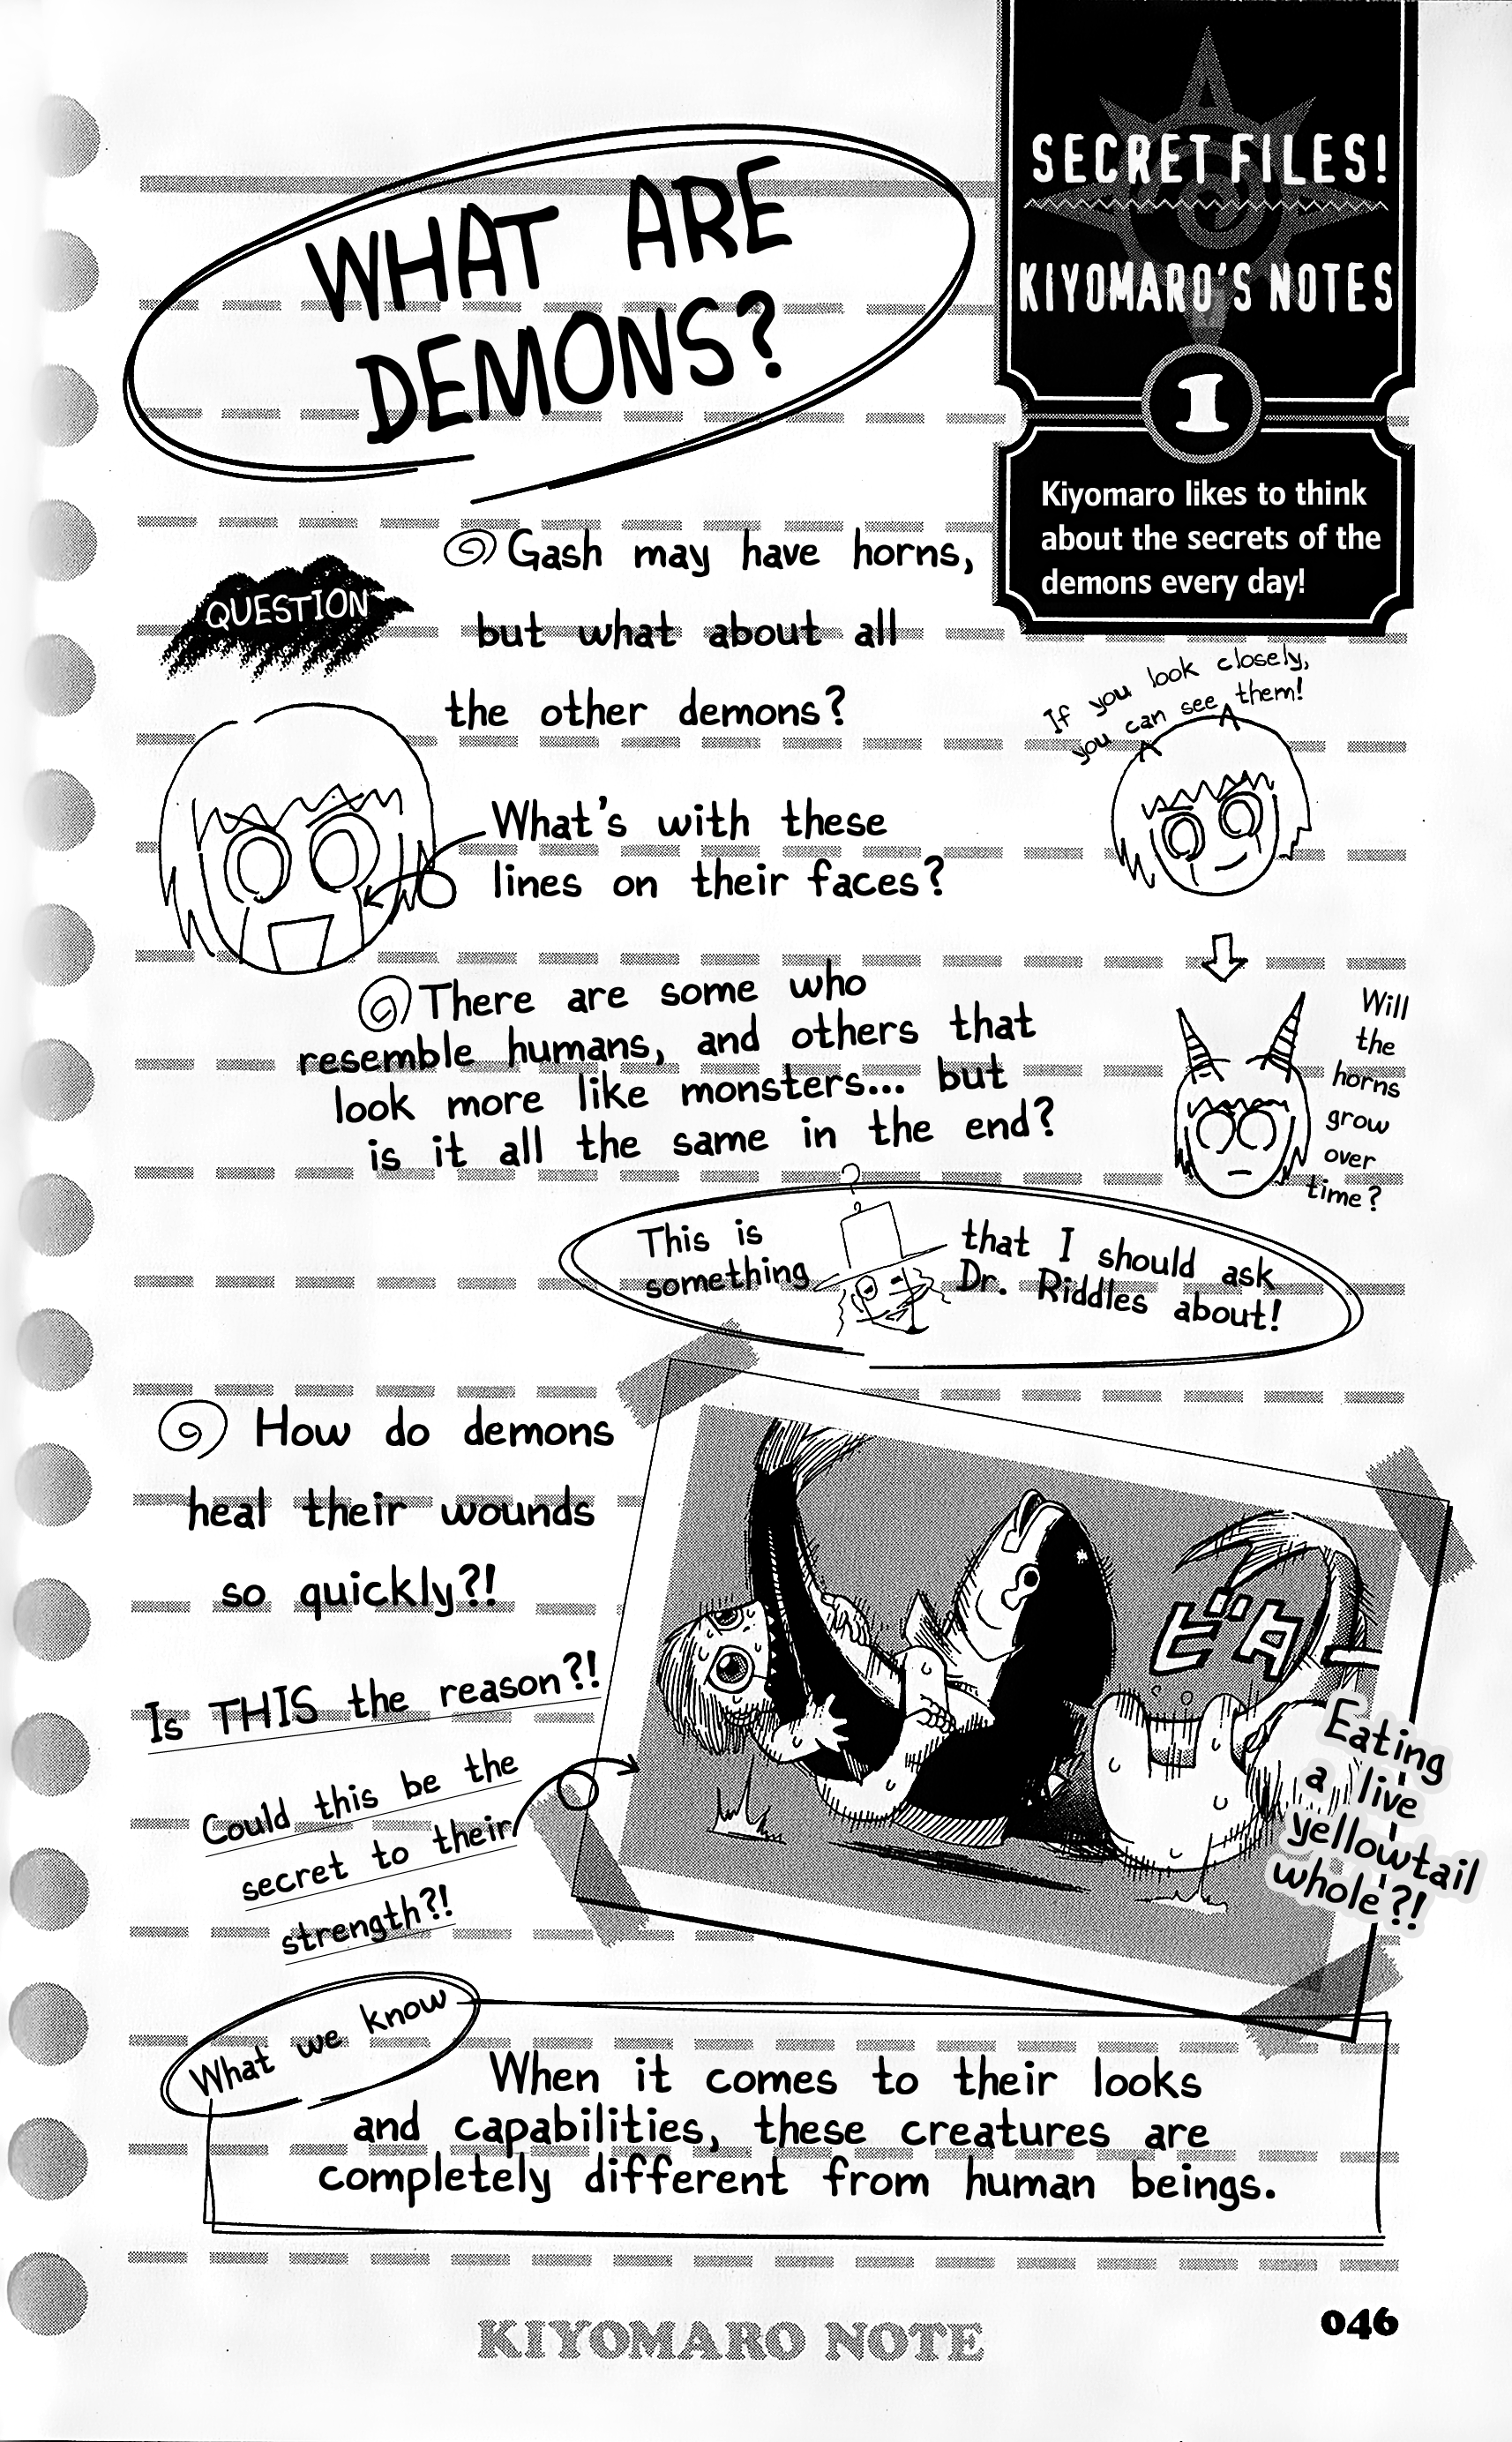 SECRET FILES!
KIYOMARO'S NOTES
1
Kiyomaro likes to think
about the secrets of the
demons every day!
WHAT ARE
DEMONS?
QUESTION
Gash may have horns,
but what about all
the other demons?
If you look closely,
you can see them!
What's with these
lines on their faces?
There are some who
resemble humans, and others that
look more like monsters... but
is it all the same in the end?
Will
the
horns
grow
over
time?
This is
something
that I should ask
Dr. Riddles about!
How do demons
heal their wounds
so quickly?!
Is THIS the reason?!
Could this be the
secret to their
strength?!
ビターン
Eating
a live
yellowtail
whole?!
What we know
When it comes to their looks
and capabilities, these creatures are
completely different from human beings.
KIYOMARO NOTE
046